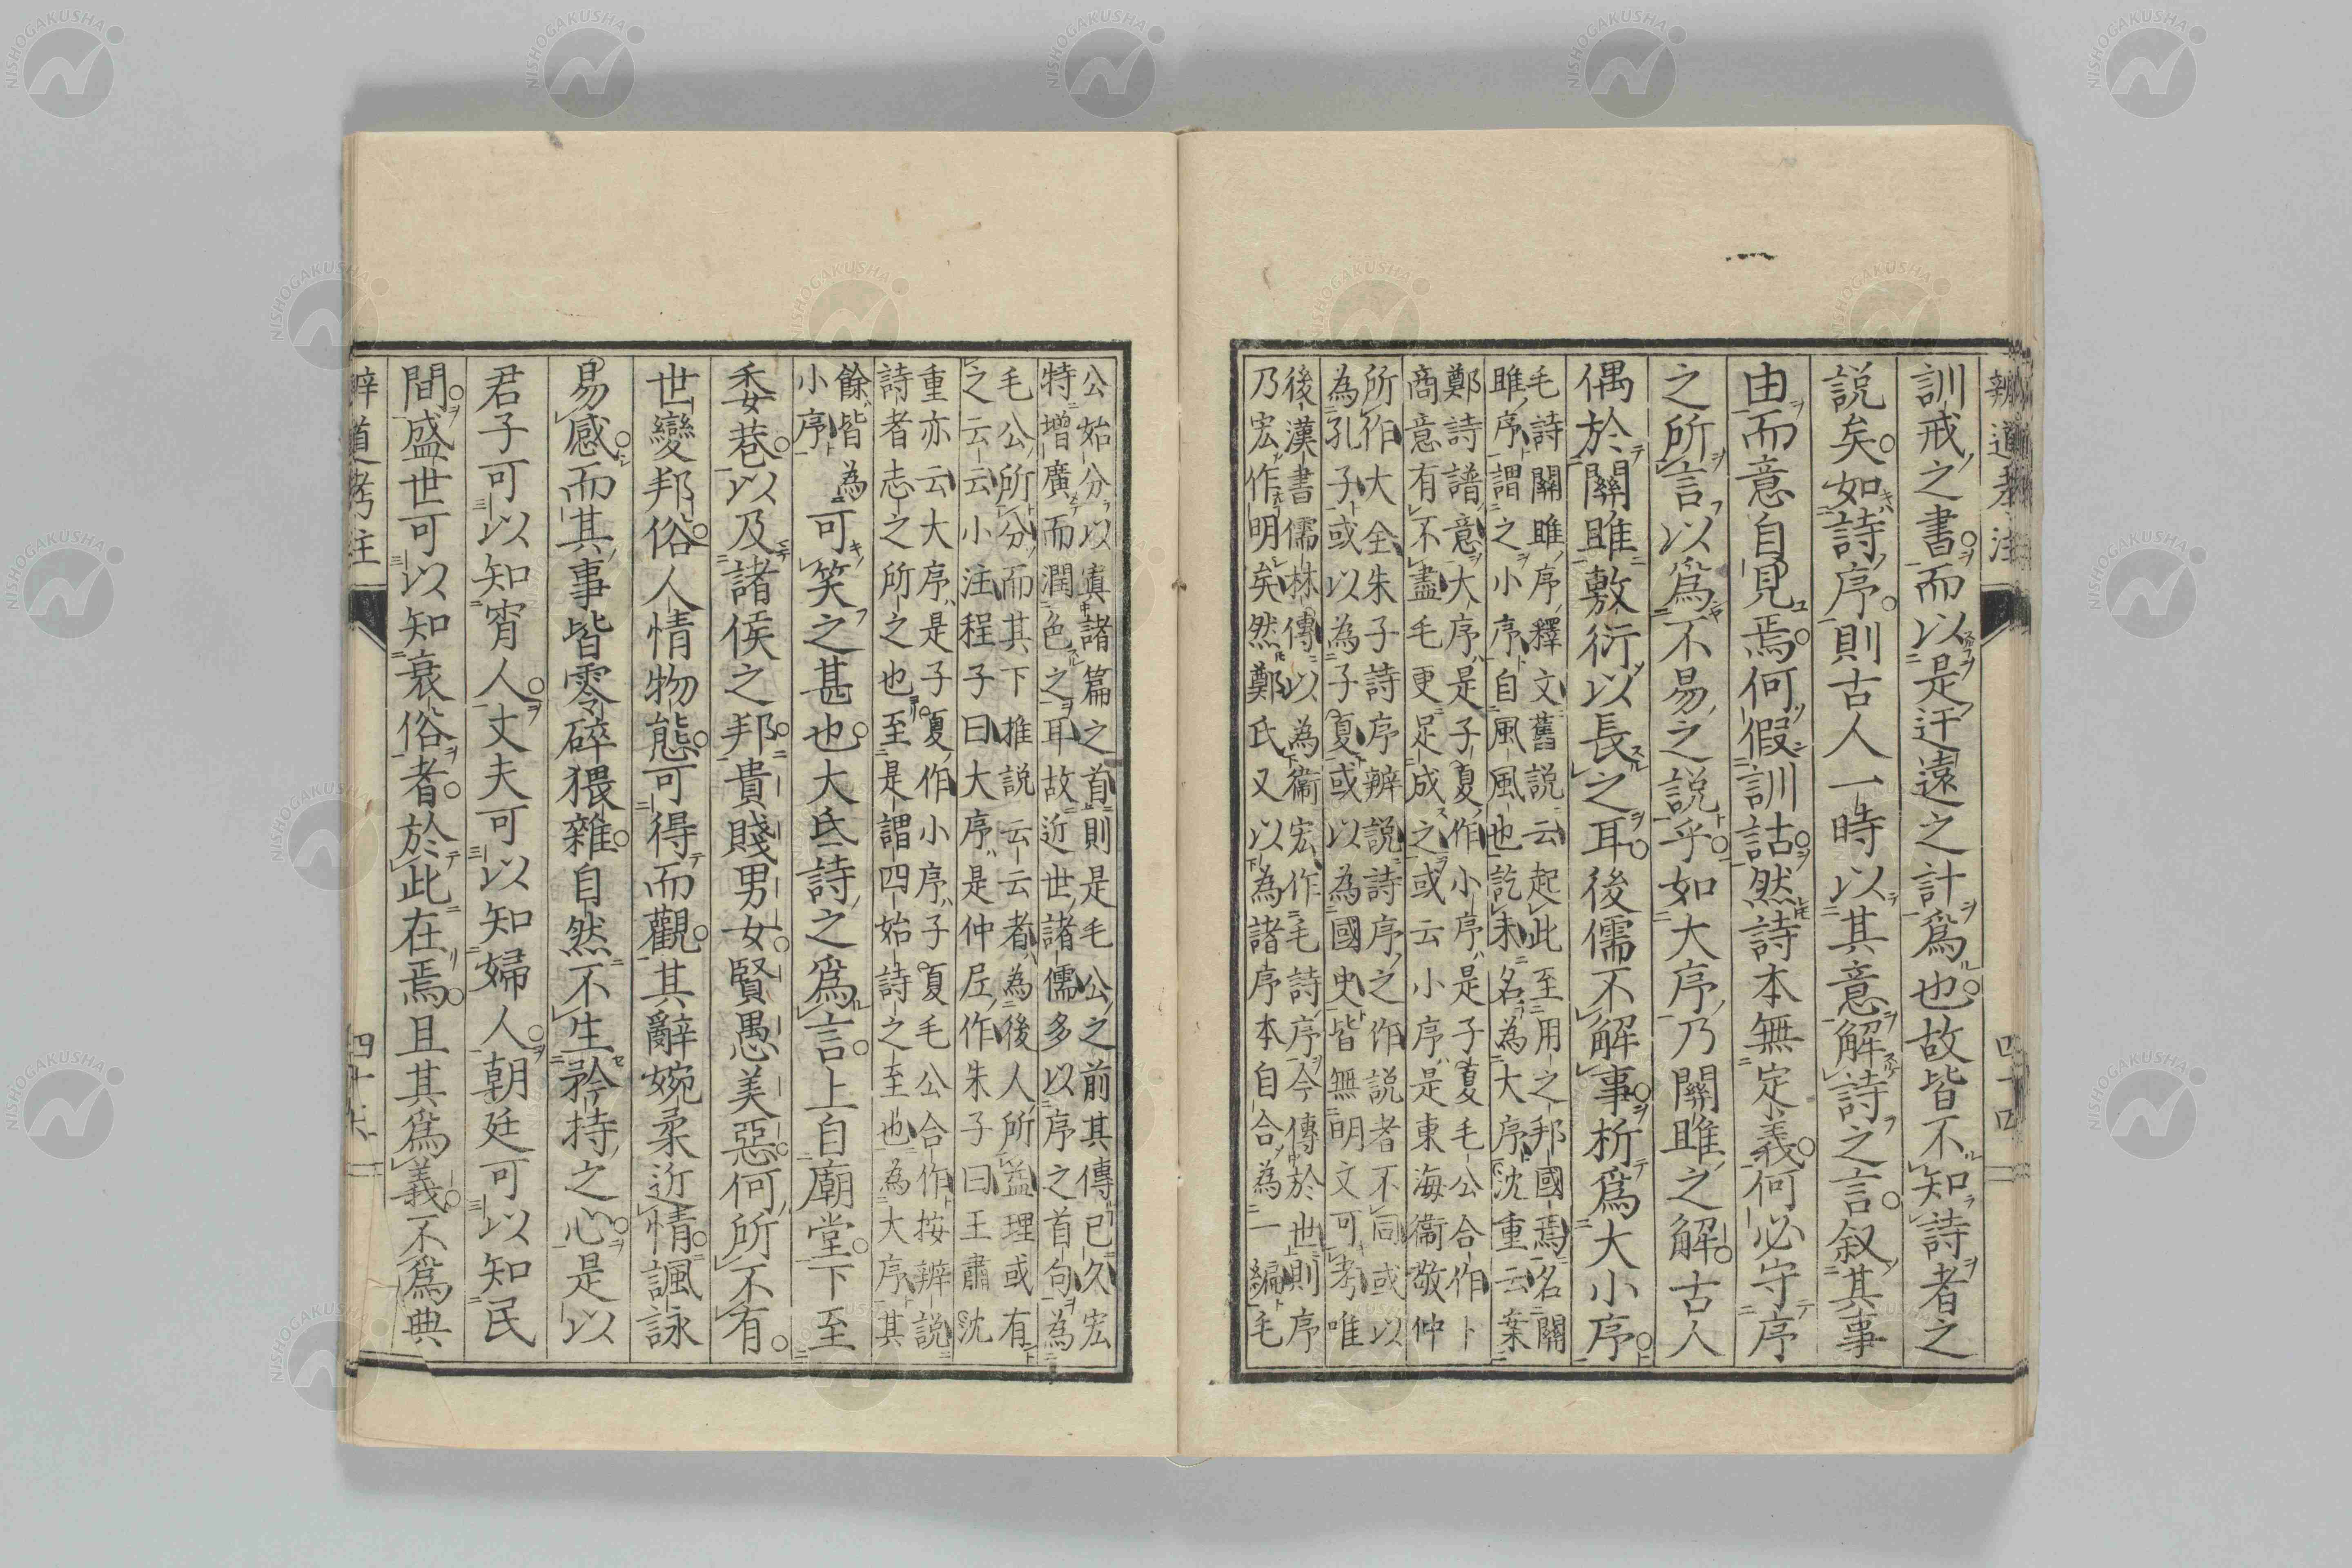 辨道考注
四十四
訓戒之書而以是迂遠之計爲也故皆不知詩者之
説矣如詩序則古人一時以其意解詩之言叙其事
由而意自見焉何假訓詁然詩本無定義何必守序
之所言以爲不易之説乎如大序乃關雎之解古人
偶於關雎敷衍以長之耳後儒不解事析爲大小序
毛詩關雎序釋文舊説云起此至用之邦國焉名關
雎序謂之小序自風風也訖末名為大序沈重云案
鄭詩譜意大序是子夏作小序是子夏毛公合作卜
商意有不盡毛更足成之或云小序是東海衞敬仲
所作大全朱子詩序辨説詩序之作説者不同或以
為孔子或以為子夏或以為國史皆無明文可考唯
後漢書儒林傳以為衞宏作毛詩序今傳於世則序
乃宏作明矣然鄭氏又以為諸序本自合為一編毛
公始分以寘諸篇之首則是毛公之前其傳已久宏
特增廣而潤色之耳故近世諸儒多以序之首句為
毛公所分而其下推説云云者為後人所益理或有
之云云小注程子曰大序是仲尼作朱子曰王肅沈
重亦云大序是子夏作小序子夏毛公合作按辨説
詩者志之所之也至是謂四始詩之至也為大序其
餘皆為
小序
可笑之甚也大氐詩之爲言上自廟堂下至
委巷以及諸侯之邦貴賤男女賢愚美惡何所不有
世變邦俗人情物態可得而觀其辭婉柔近情諷詠
易感而其事皆零碎猥雜自然不生矜持之心是以
君子可以知宵人丈夫可以知婦人朝廷可以知民
間盛世可以知衰俗者於此在焉且其爲義不爲典
辨道考注
NISHOGAKUSHA